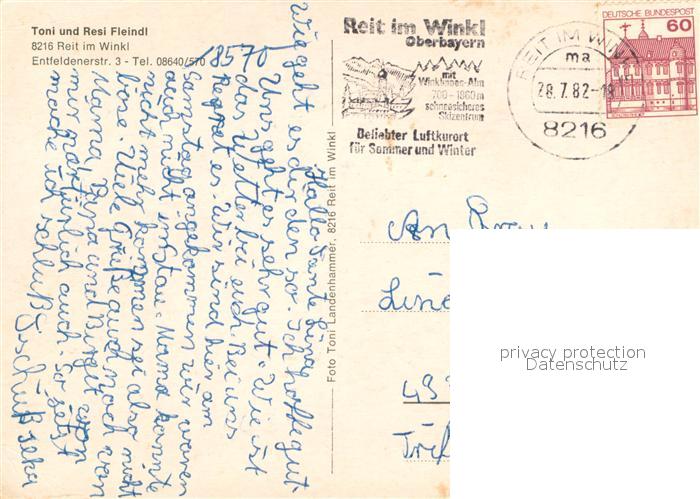 Toni und Resi Fleindl
8216 Reit im Winkl
Entfeldenerstr. 3 - Tel. 08640/570
18570
Hallo Tante Lina
Wie geht es dir den so. Ich hoffe gut
Uns geht es sehr gut. Wie ist
das Wetter bei euch. Bei uns
Regnet es. Wir sind hir am
Samstag angekommen wir waren
auch nicht im Stau. Mama kannte
nicht mehr kommen sei also nicht
böse. Viele Grüße auch noch von
Mama, und Birgit von
mir natürlich auch. So jetzt
mache ich schluß Tschüß
Foto Toni Landenhammer, 8216 Reit im Winkl
Reit im Winkl
Oberbayern
mit
Winklmoos-Alm
700-1860m
schneesicheres
Skizentrum
Beliebter Luftkurort
für Sommer und Winter
REIT IM WINKL
ma
28.7.82-18
8216
DEUTSCHE BUNDESPOST
60
An
privacy protection
Datenschutz